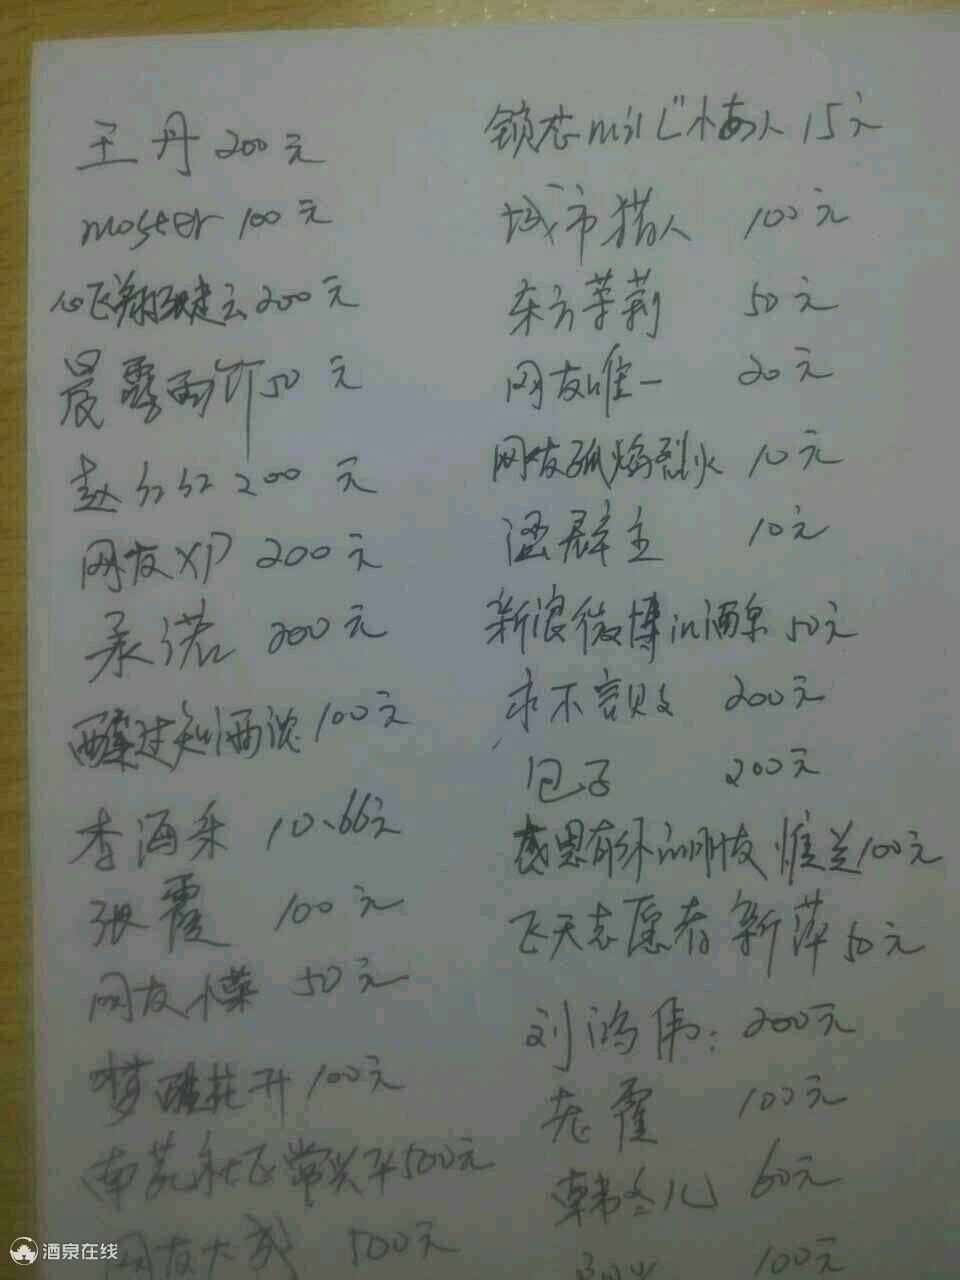 王丹 200元
moster 100元
心飞翔 建云 200元
晨露雨竹 50元
赵红红 200元
网友XP 200元
承诺 200元
醉过知酒浓 100元
李海泉 10.66元
张霞 100元
网友小叶 50元
梦醒花开 100元
南苑社区常兴平 500元
网友大 500元
锁态 人 15元
城市猎人 100元
东方茉莉 50元
网友唯一 20元
网友孤焰烈火 10元
涵群主 10元
新浪微博in酒泉 50元
求不言败 200元
包子 200元
感恩有你的朋友 惟兰 100元
飞天志愿者 新萍 50元
刘鸿伟: 200元
老霍 100元
韩冬儿 60元
100元
酒泉在线